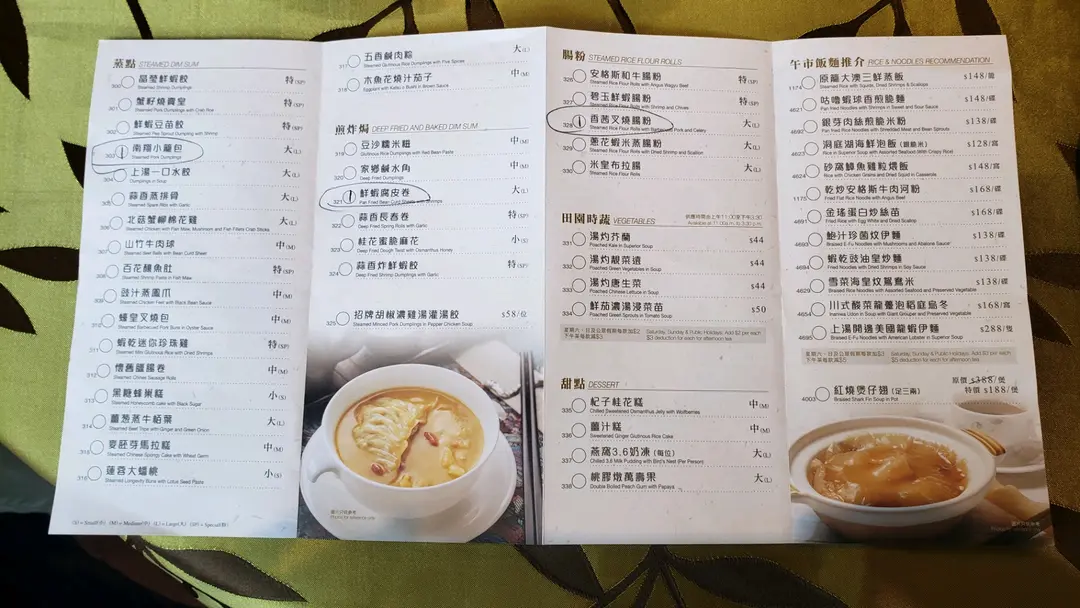 蒸點 STEAMED DIM SUM
300 晶瑩鮮蝦餃 特(SP)
Steamed Shrimp Dumplings
301 蟹籽燒賣皇 特(SP)
Steamed Pork Dumplings with Crab Roe
302 鮮蝦豆苗餃 特(SP)
Steamed Pea Sprout Dumpling with Shrimp
303 南翔小籠包 大(L)
Steamed Pork Dumplings
304 上湯一口水餃 大(L)
Dumplings in Soup
305 蒜香蒸排骨 大(L)
Steamed Spare Ribs with Garlic
306 北菇蟹柳棉花雞 大(L)
307 山竹牛肉球 中(M)
Steamed Beef Balls with Bean Curd Sheet
308 百花釀魚肚 特(SP)
Steamed Shrimp Paste in Fish Maw
309 豉汁蒸鳳爪 中(M)
Steamed Chicken Feet with Black Bean Sauce
310 蠔皇叉燒包 中(M)
Steamed Barbecued Pork Buns in Oyster Sauce
311 蝦乾迷你珍珠雞 特(SP)
Steamed Mini Glutinous Rice with Dried Shrimps
312 懷舊臘腸卷 中(M)
Steamed Chinese Sausage Rolls
313 黑糖蜂巢糕 小(S)
Steamed Honeycomb cake with Black Sugar
314 薑葱蒸牛栢葉 大(L)
Steamed Beef Tripe with Ginger and Green Onion
315 麥胚芽馬拉糕 中(M)
Steamed Chinese Spongy Cake with Wheat Germ
316 蓮蓉大蟠桃 小(S)
Steamed Longevity Buns with Lotus Seed Paste
(S) = Small(小) (M) = Medium(中) (L) = Large(大) (SP) = Special(特)
317 五香鹹肉粽 大(L)
Steamed Glutinous Rice Dumplings with Five Spices
318 木魚花燒汁茄子 中(M)
Eggplant with Katsuo Bushi in Brown Sauce
煎炸焗 DEEP FRIED AND BAKED DIM SUM
319 豆沙糯米糍 中(M)
Glutinous Rice Dumplings with Red Bean Paste
320 家鄉鹹水角 中(M)
Deep Fried Dumplings
321 鮮蝦腐皮卷 大(L)
Pan Fried Bean Curd Sheets with Shrimps
322 蒜香長春卷 特(SP)
Deep Fried Spring Rolls with Garlic
323 桂花蜜脆麻花 小(S)
Deep Fried Dough Twist with Osmanthus Honey
324 蒜香炸鮮蝦餃 特(SP)
Deep Fried Shrimp Dumpling with Garlic
325 招牌胡椒濃雞湯灌湯餃 $58/位
Steamed Minced Pork Dumplings in Pepper Chicken Soup
圖片只供參考
腸粉 STEAMED RICE FLOUR ROLLS
326 安格斯和牛腸粉 特(SP)
Steamed Rice Flour Rolls with Angus Waygu Beef
327 碧玉鮮蝦腸粉 特(SP)
Steamed Rice Flour Rolls with Shrimp and Chives
328 香茜叉燒腸粉 大(L)
Steamed Rice Flour Rolls with Barbecued Pork and Celery
329 蔥花蝦米蒸腸粉 大(L)
Steamed Rice Flour Rolls with Dried Shrimp and Scallion
330 米皇布拉腸 大(L)
Steamed Rice Flour Rolls
田園時蔬 VEGETABLES
供應時間由上午11:00至下午3:30
Available at 11:00a.m. to 3:30 p.m.
331 湯灼芥蘭 $44
Poached Kale in Superior Soup
332 湯灼靚菜遠 $44
Poached Green Vegetables in Soup
333 湯灼唐生菜 $44
Poached Chinese Lettuce in Soup
334 鮮茄濃湯浸菜苗 $50
Poached Green Sprouts in Tomato Soup
星期六、日及公眾假期每款加$2
下午茶每款減$3
Saturday, Sunday & Public Holidays. Add $2 per each
$3 deduction for each for afternoon tea
甜點 DESSERT
335 杞子桂花糕 中(M)
Chilled Sweetened Osmanthus Jelly with Wolfberries
336 薑汁糕 中(M)
Sweetened Ginger Glutinous Rice Cake
337 燕窩3.6奶凍(每位) 大(L)
Chilled 3.6 Milk Pudding with Bird's Nest (Per Person)
338 桃膠燉萬壽果 大(L)
Double Boiled Peach Gum with Papaya
午市飯麵推介 RICE & NOODLES RECOMMENDATION
1174 原籠大澳三鮮蒸飯 $148/籠
Steamed Rice with Squids, Dried Shrimps & Scallops
4621 咕嚕蝦球香煎脆麵 $148/碟
Pan Fried Noodles with Shrimps in Sweet and Sour Sauce
4692 銀芽肉絲煎脆米粉 $138/碟
Pan Fried Rice Noodles with Shredded Meat and Bean Sprouts
4627 洞庭湖海鮮泡飯(跟脆米) $128/窩
Rice in Superior Soup with Assorted Seafood (With Crispy Rice)
4624 砂窩鱆魚雞粒煨飯 $148/窩
Rice with Chicken Grains and Dried Squid in Casserole
1175 乾炒安格斯牛肉河粉 $128/碟
Fried Flat Rice Noodles with Angus Beef
4690 金瑤蛋白炒絲苗 $168/碟
Fried Rice with Egg White and Dried Scallop
4693 鮑汁珍菌炆伊麵 $138/碟
Braised E-Fu Noodles with Mushrooms and Abalone Sauce
4694 蝦乾豉油皇炒麵 $138/碟
Fried Noodles with Dried Shrimps in Soy Sauce
4629 雪菜海皇炆鴛鴦米 $138/碟
Braised Rice Noodles with Assorted Seafood and Preserved Vegetable
4654 川式酸菜龍躉泡稻庭烏冬 $168/窩
Inaniwa Udon in Soup with Giant Grouper and Preserved Vegetables
4695 上湯開邊美國龍蝦伊麵 $288/隻
Braised E-Fu Noodles with American Lobster in Superior Soup
星期六、日及公眾假期每款加$2
下午茶每款減$5
Saturday, Sunday & Public Holidays. Add $2 per each
$5 deduction for each for afternoon tea
4003 紅燒煲仔翅(足三兩) 原價 $388/煲
特價 $188/煲
Braised Shark Fin Soup in Pot
圖片只供參考